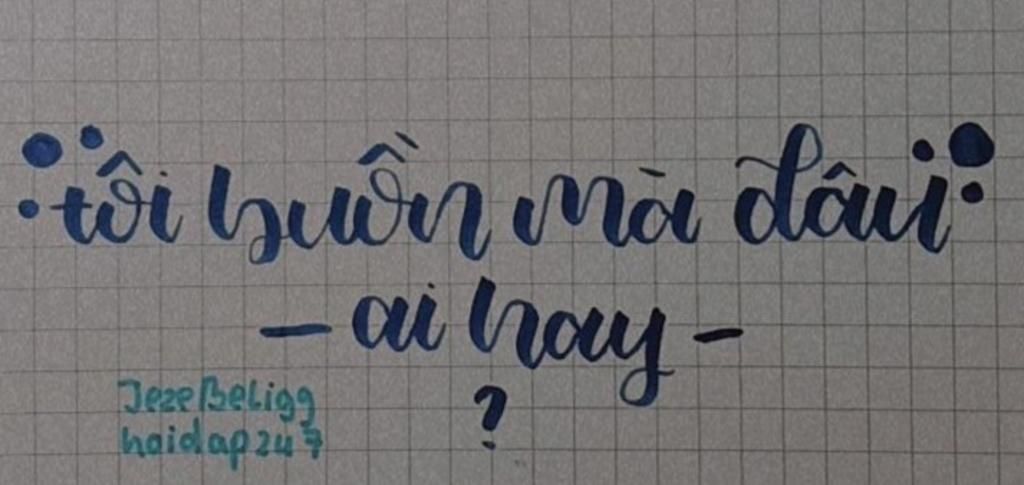 tôi buồn mà đâu
- ai hay -
?
JezeBeLigg
hoidap247